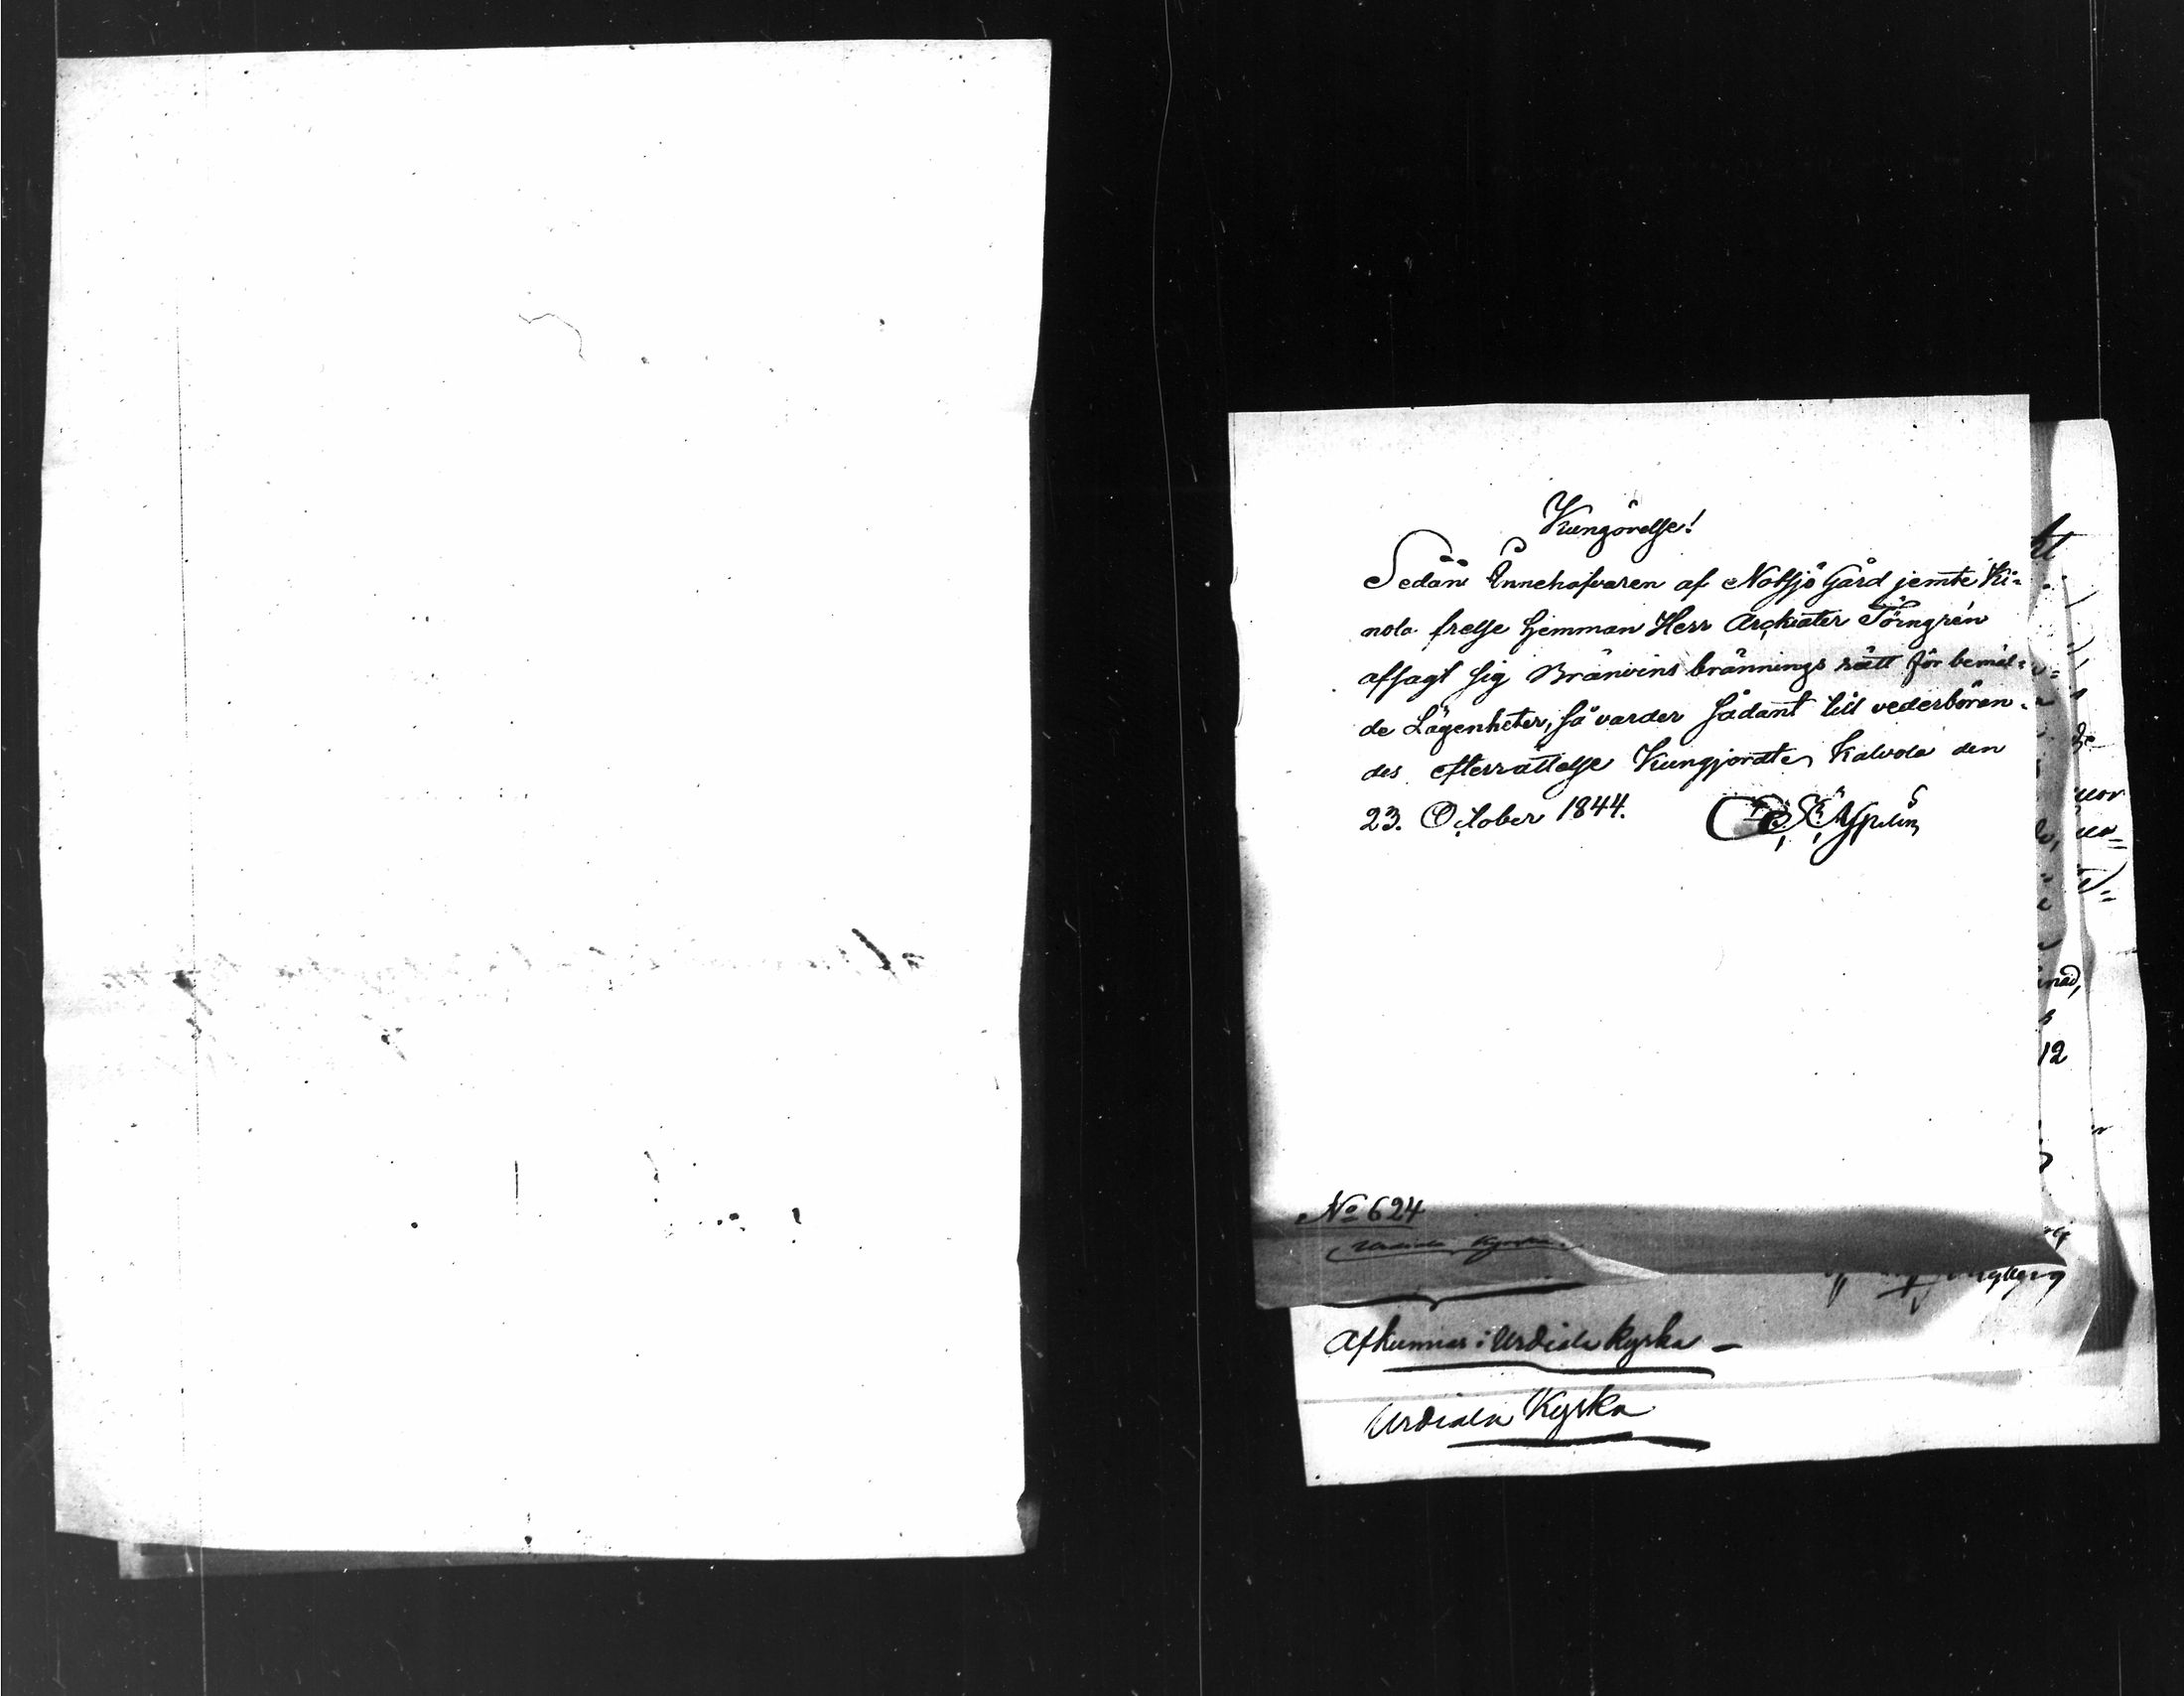 Kungörelse!
Sedan Innehafvaren af Notsjö Gård jemte Ki-
nola frelse Hemman Herr Archiater Törngrén
afsagt sig Bränvins brännings rätt för bemäl-
de Lägenheter, så varder sådant till vederböran-
des efterrättelse Kungjordt, Kalvola den
23. October 1844.
No 624
Urdiala Kyrka
Afkunnas i Urdiala Kyrka –
Urdiala Kyrka
12